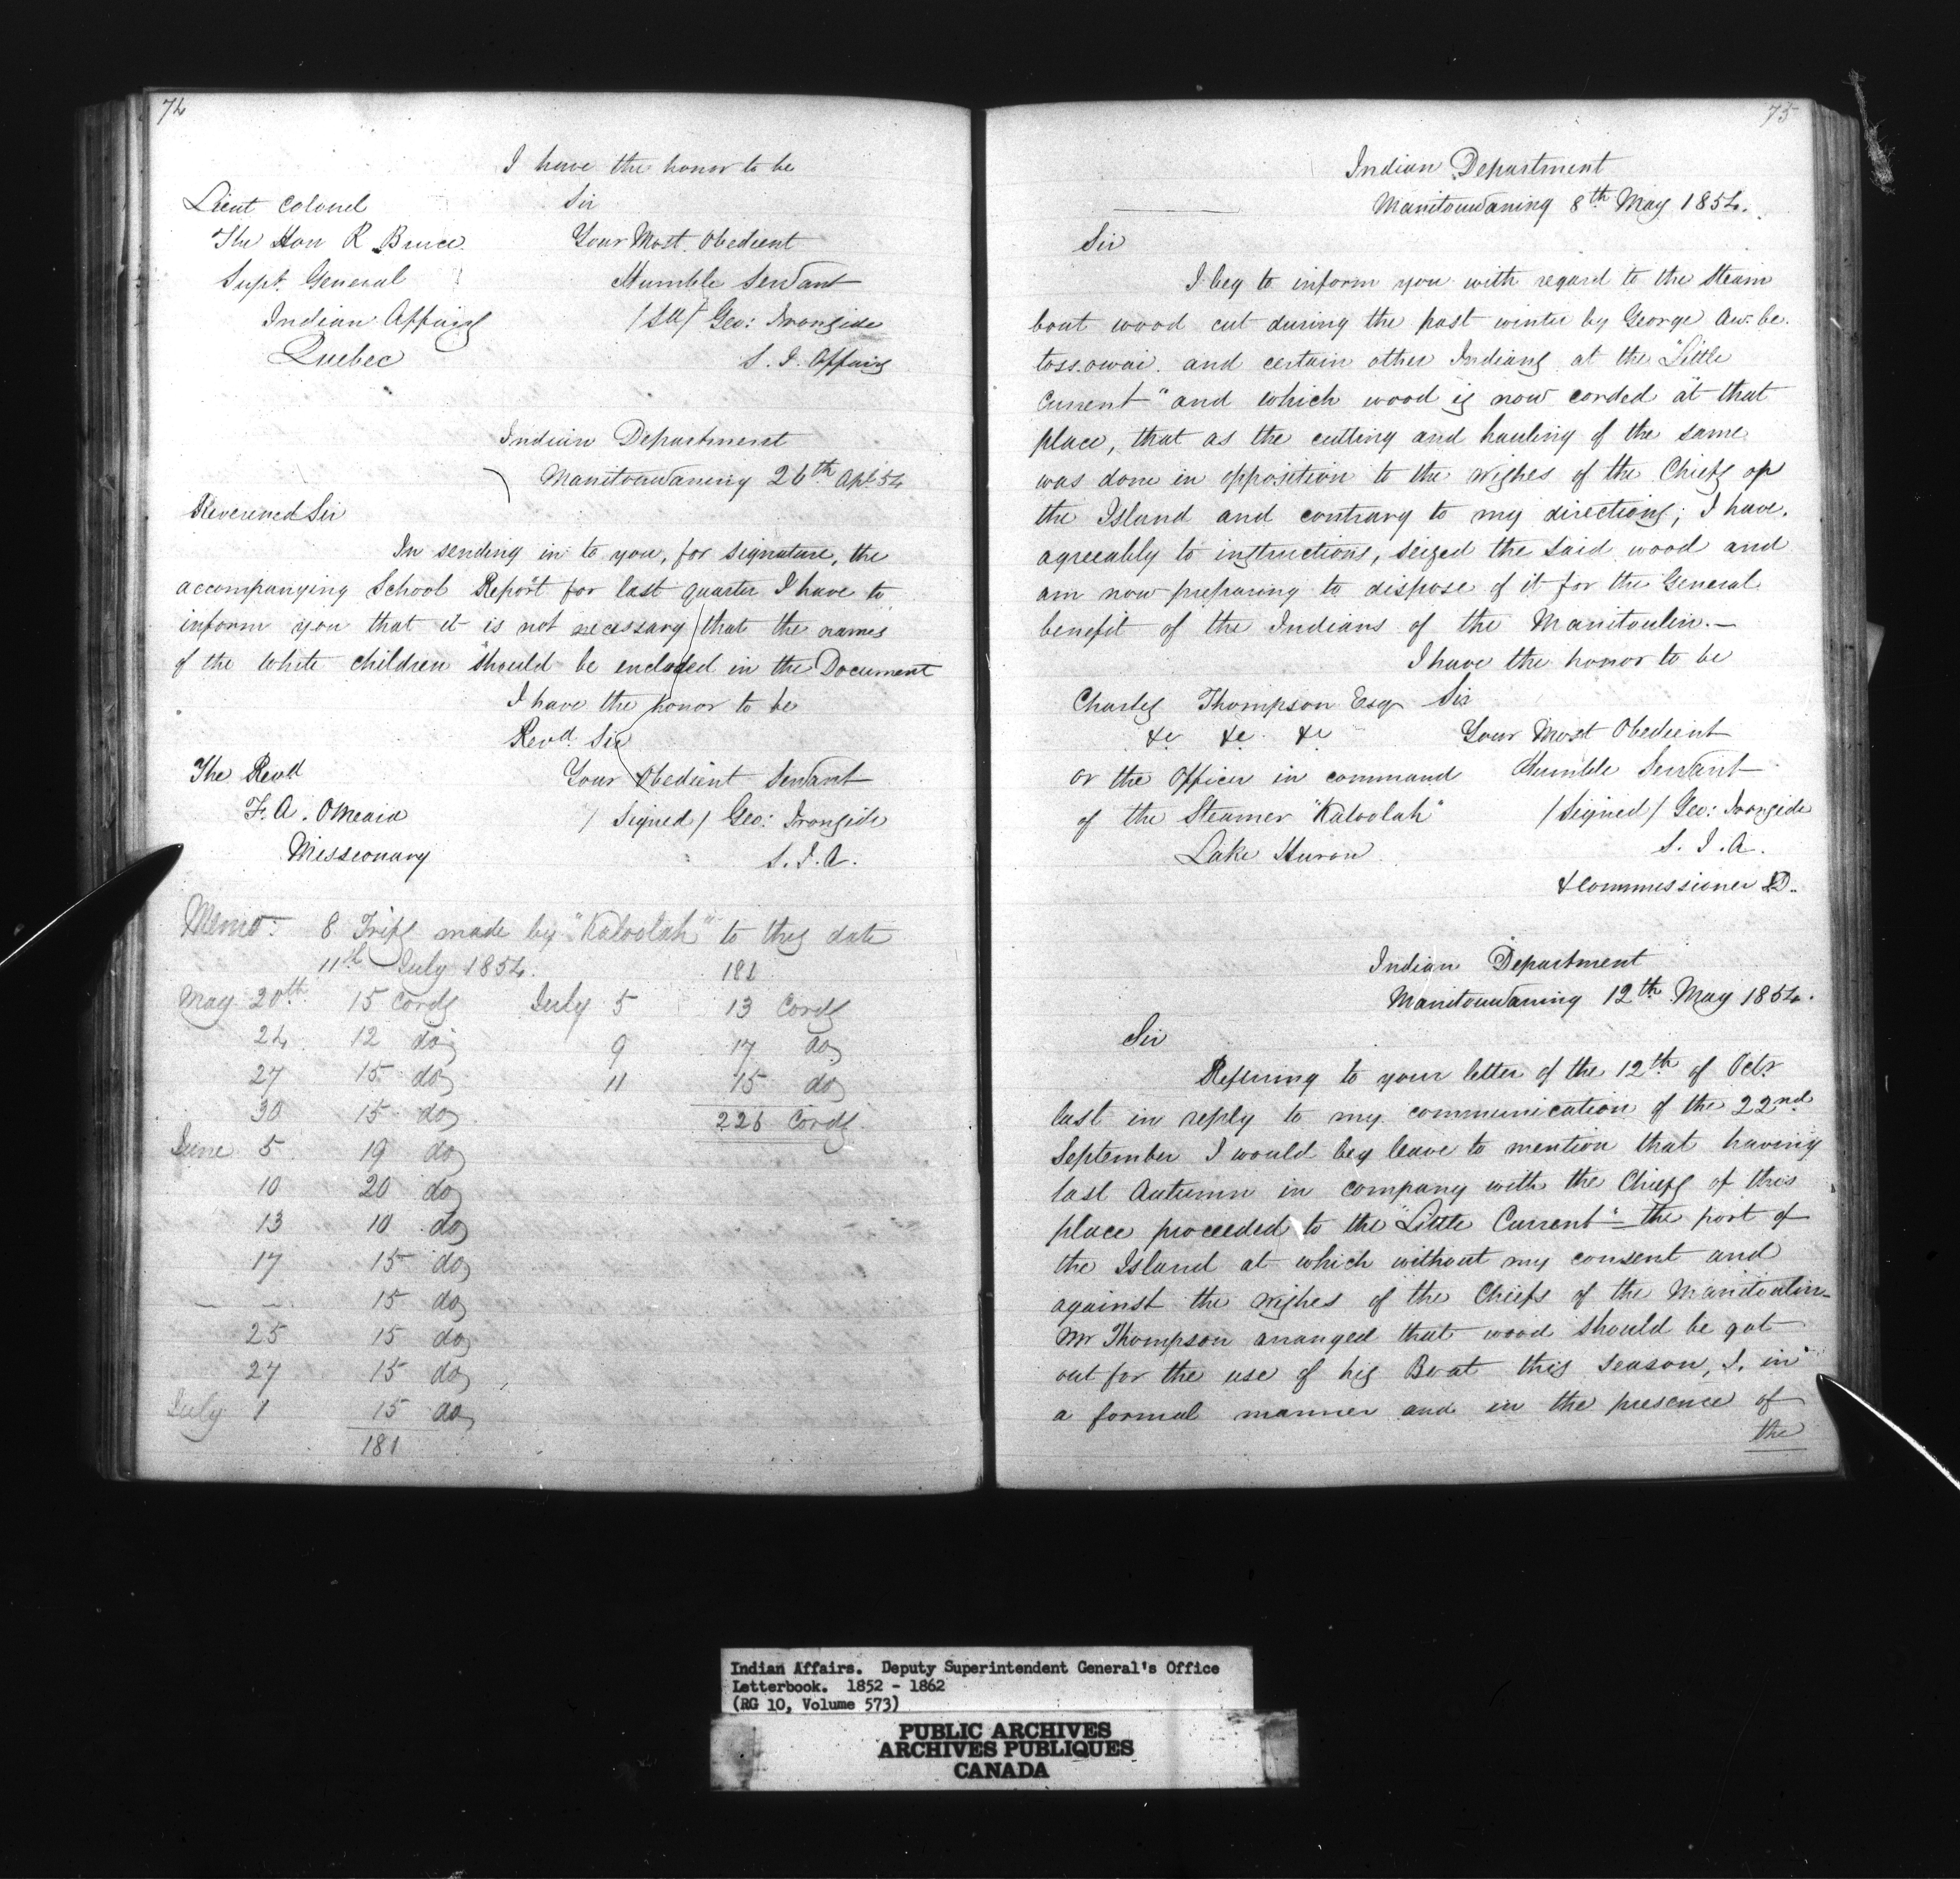 74
I have the honor to be
Lieut Colonel Sir
The Hon R Bruce Your Most Obedient
Supt. General Humble Servant
Indian Affairs /Sd/ Geo: Ironside
Quebec S. I. Affairs
Indian Department
Manitouwaning 26th Apl 54
Reverend Sir
In sending in to you, for signature, the
accompanying School Report for last quarter I have to
inform you that it is not necessary that the names
of the White children should be included in the Document
I have the honor to be
Revd. Sir
The Revd Your Obedient Servant
F. A. OMeara / Signed / Geo: Ironside
Missionary S. I. A.
Memo: 8 Trips made by "Kaloolah" to this date
11th July 1854. 181
May 20th 15 Cords July 5 13 Cords
24 12 do 9 17 do
27 15 do 11 15 do
30 15 do 226 Cords
June 5 19 do
10 20 do
13 10 do
17 15 do
— — 15 do
25 15 do
27 15 do
July 1 15 do
181
75
Indian Department
Manitouwaning 8th May 1854.
Sir
I beg to inform you with regard to the Steam
boat wood cut during the past winter by George Aw.be.
toss.owai. and certain other Indians at the "Little
Current" and which wood is now corded at that
place, that as the cutting and hauling of the same
was done in opposition to the wishes of the Chiefs of
the Island and contrary to my directions; I have,
agreeably to instructions, seized the said wood and
am now preparing to dispose of it for the General
benefit of the Indians of the Manitoulin.—
I have the honor to be
Charles Thompson Esqr Sir
&c &c &c Your Most Obedient
or the Officer in command Humble Servant
of the Steamer "Kaloolah" /Signed/ Geo: Ironside
Lake Huron S. I. A.
& Commissioner
Indian Department
Manitouwaning 12th May 1854.
Sir
Referring to your letter of the 12th of Octr
last in reply to my communication of the 22nd
September I would beg leave to mention that having
last Autumn in company with the Chiefs of this
place proceeded to the "Little Current" – the port of
the Island at which without my consent and
against the wishes of the Chiefs of the Manitoulin
Mr Thompson arranged that wood should be got
out for the use of his Boat this Season, I, in
a formal manner and in the presence of
the
Indian Affairs. Deputy Superintendent General's Office
Letterbook. 1852 - 1862
(RG 10, Volume 573)
PUBLIC ARCHIVES
ARCHIVES PUBLIQUES
CANADA